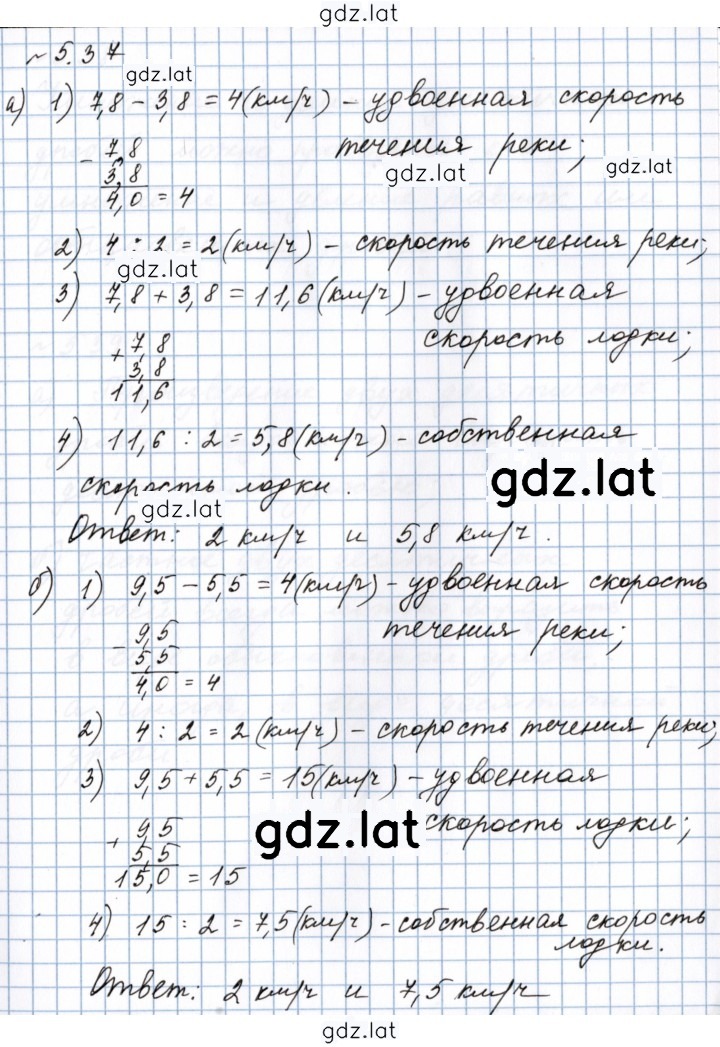 gdz.lat
~ 5.37
gdz.lat
а) 1) 7,8 - 3,8 = 4(км/ч) - удвоенная скорость
течения реки;
gdz.lat
gdz.lat
- 7,8
3,8
4,0 = 4
2) 4 : 2 = 2(км/ч) - скорость течения реки;
gdz.lat
3) 7,8 + 3,8 = 11,6(км/ч) - удвоенная
скорость лодки;
+ 7,8
3,8
11,6
4) 11,6 : 2 = 5,8(км/ч) - собственная
скорость лодки.
gdz.lat
gdz.lat
Ответ: 2 км/ч и 5,8 км/ч.
б) 1) 9,5 - 5,5 = 4(км/ч) - удвоенная скорость
течения реки;
- 9,5
5,5
4,0 = 4
2) 4 : 2 = 2(км/ч) - скорость течения реки;
3) 9,5 + 5,5 = 15(км/ч) - удвоенная
скорость лодки;
gdz.lat
+ 9,5
5,5
15,0 = 15
4) 15 : 2 = 7,5(км/ч) - собственная скорость
лодки.
Ответ: 2 км/ч и 7,5 км/ч
gdz.lat